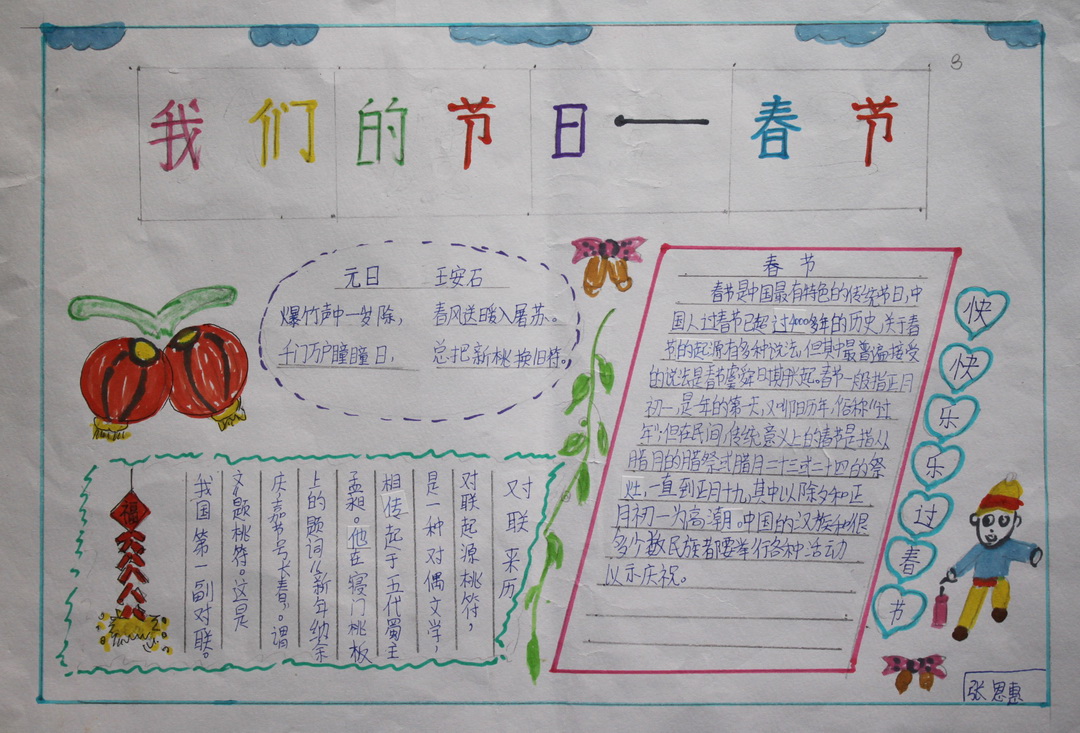 8
我们的节日——春节
元日 王安石
爆竹声中一岁除， 春风送暖入屠苏。
千门万户曈曈日， 总把新桃换旧符。
对联来历
对联起源桃符，
是一种对偶文学，
相传起于五代蜀主
孟昶。他在寝门桃板
上的题词“新年纳余
庆，嘉节号长春”。谓
文“题桃符”。这是
我国第一副对联。
福
春节
春节是中国最有特色的传统节日，中
国人过春节已超过4000多年的历史，关于春
节的起源有多种说法，但其中最普遍接受
的说法是春节虞舜日期兴起。春节一般指正月
初一，是年的第一天，又叫旧历年，俗称“过
年”；但在民间，传统意义上的春节是指从
腊月的腊祭或腊月二十三或二十四的祭
灶，一直到正月十九，其中以除夕和正
月初一为高潮。中国的汉族和很
多少数民族都要举行各种活动
以示庆祝。
快快乐乐过春节
张恩惠